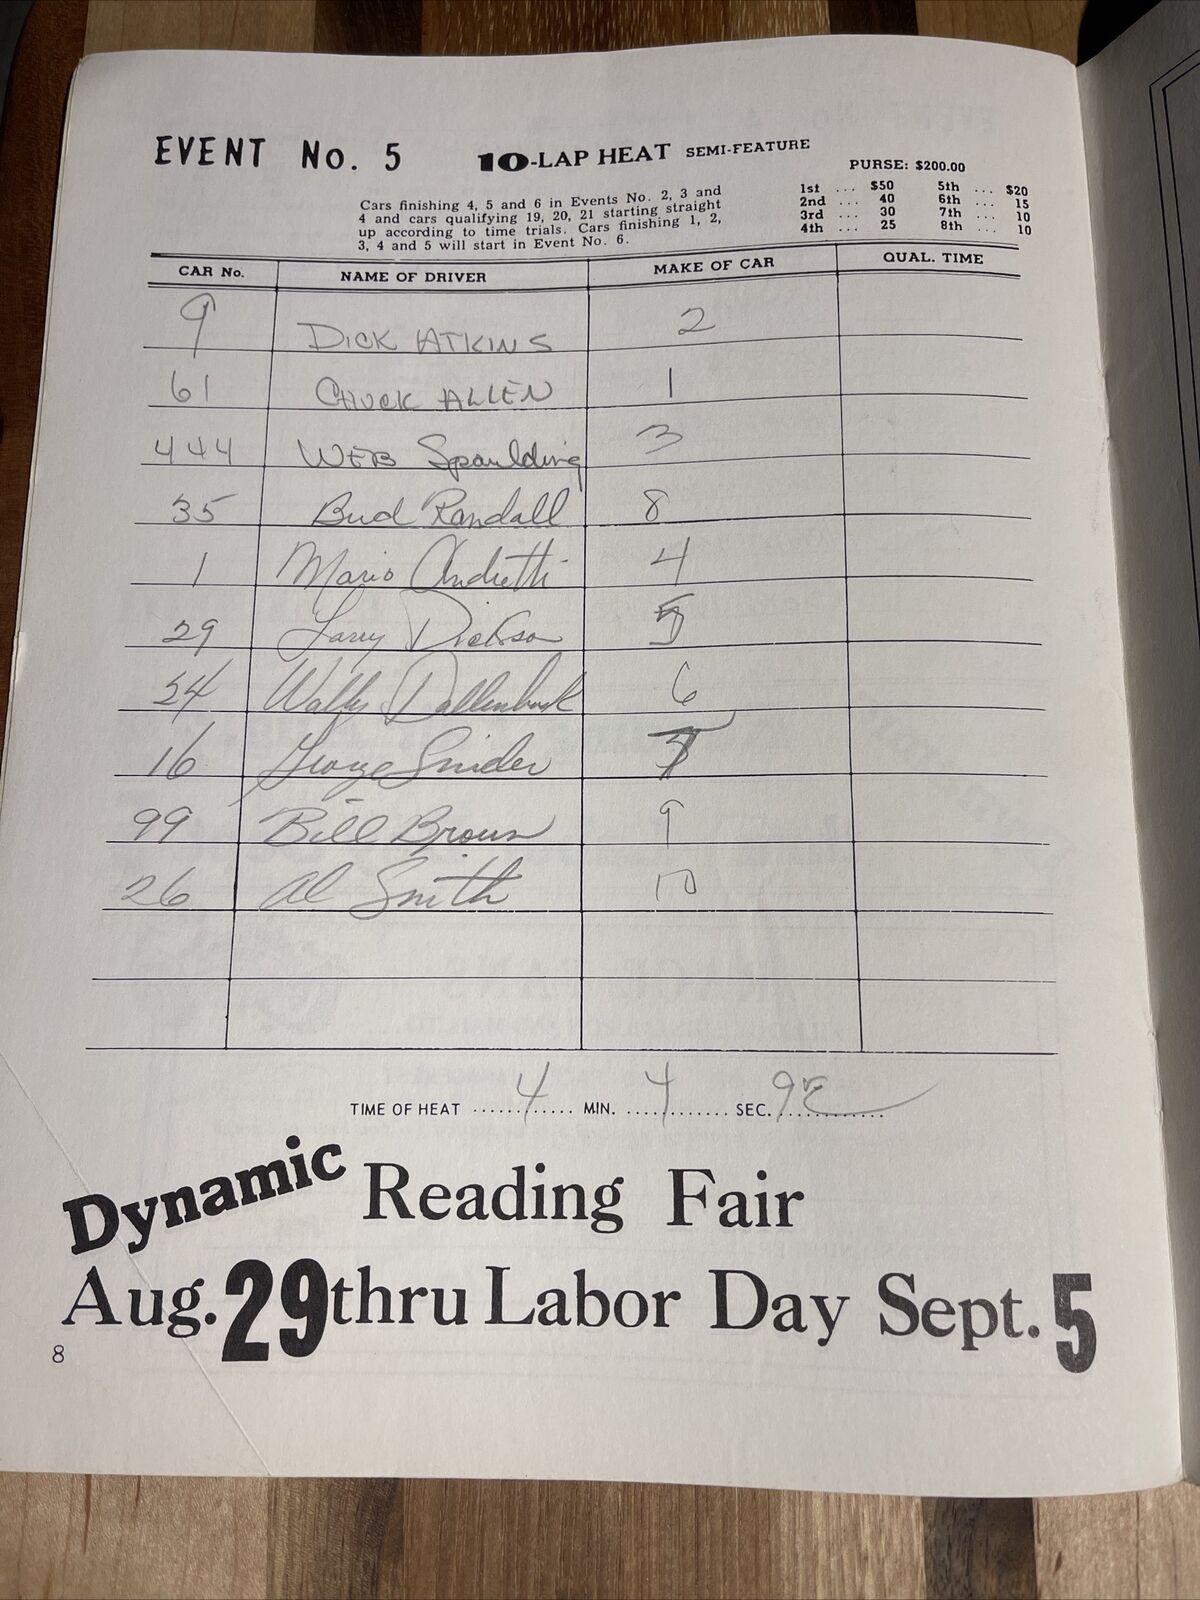 EVENT No. 5 10-LAP HEAT SEMI-FEATURE
PURSE: $200.00
Cars finishing 4, 5 and 6 in Events No. 2, 3 and
4 and cars qualifying 19, 20, 21 starting straight
up according to time trials. Cars finishing 1, 2,
3, 4 and 5 will start in Event No. 6.
1st ... $50 5th ... $20
2nd ... 40 6th ... 15
3rd ... 30 7th ... 10
4th ... 25 8th ... 10
CAR No. NAME OF DRIVER MAKE OF CAR QUAL. TIME
9 DICK ATKINS 2
61 CHUCK ALLEN 1
444 WEB Spaulding 3
35 Bud Randall 8
1 Mario Andretti 4
29 Larry Dickson 5
24 Wally Dallenback 6
16 George Snider 7
99 Bill Brown 9
26 Al Smith 10
TIME OF HEAT ...... 4 ..... MIN. .... 4 ....... SEC.
Dynamic Reading Fair
Aug. 29 thru Labor Day Sept. 5
8